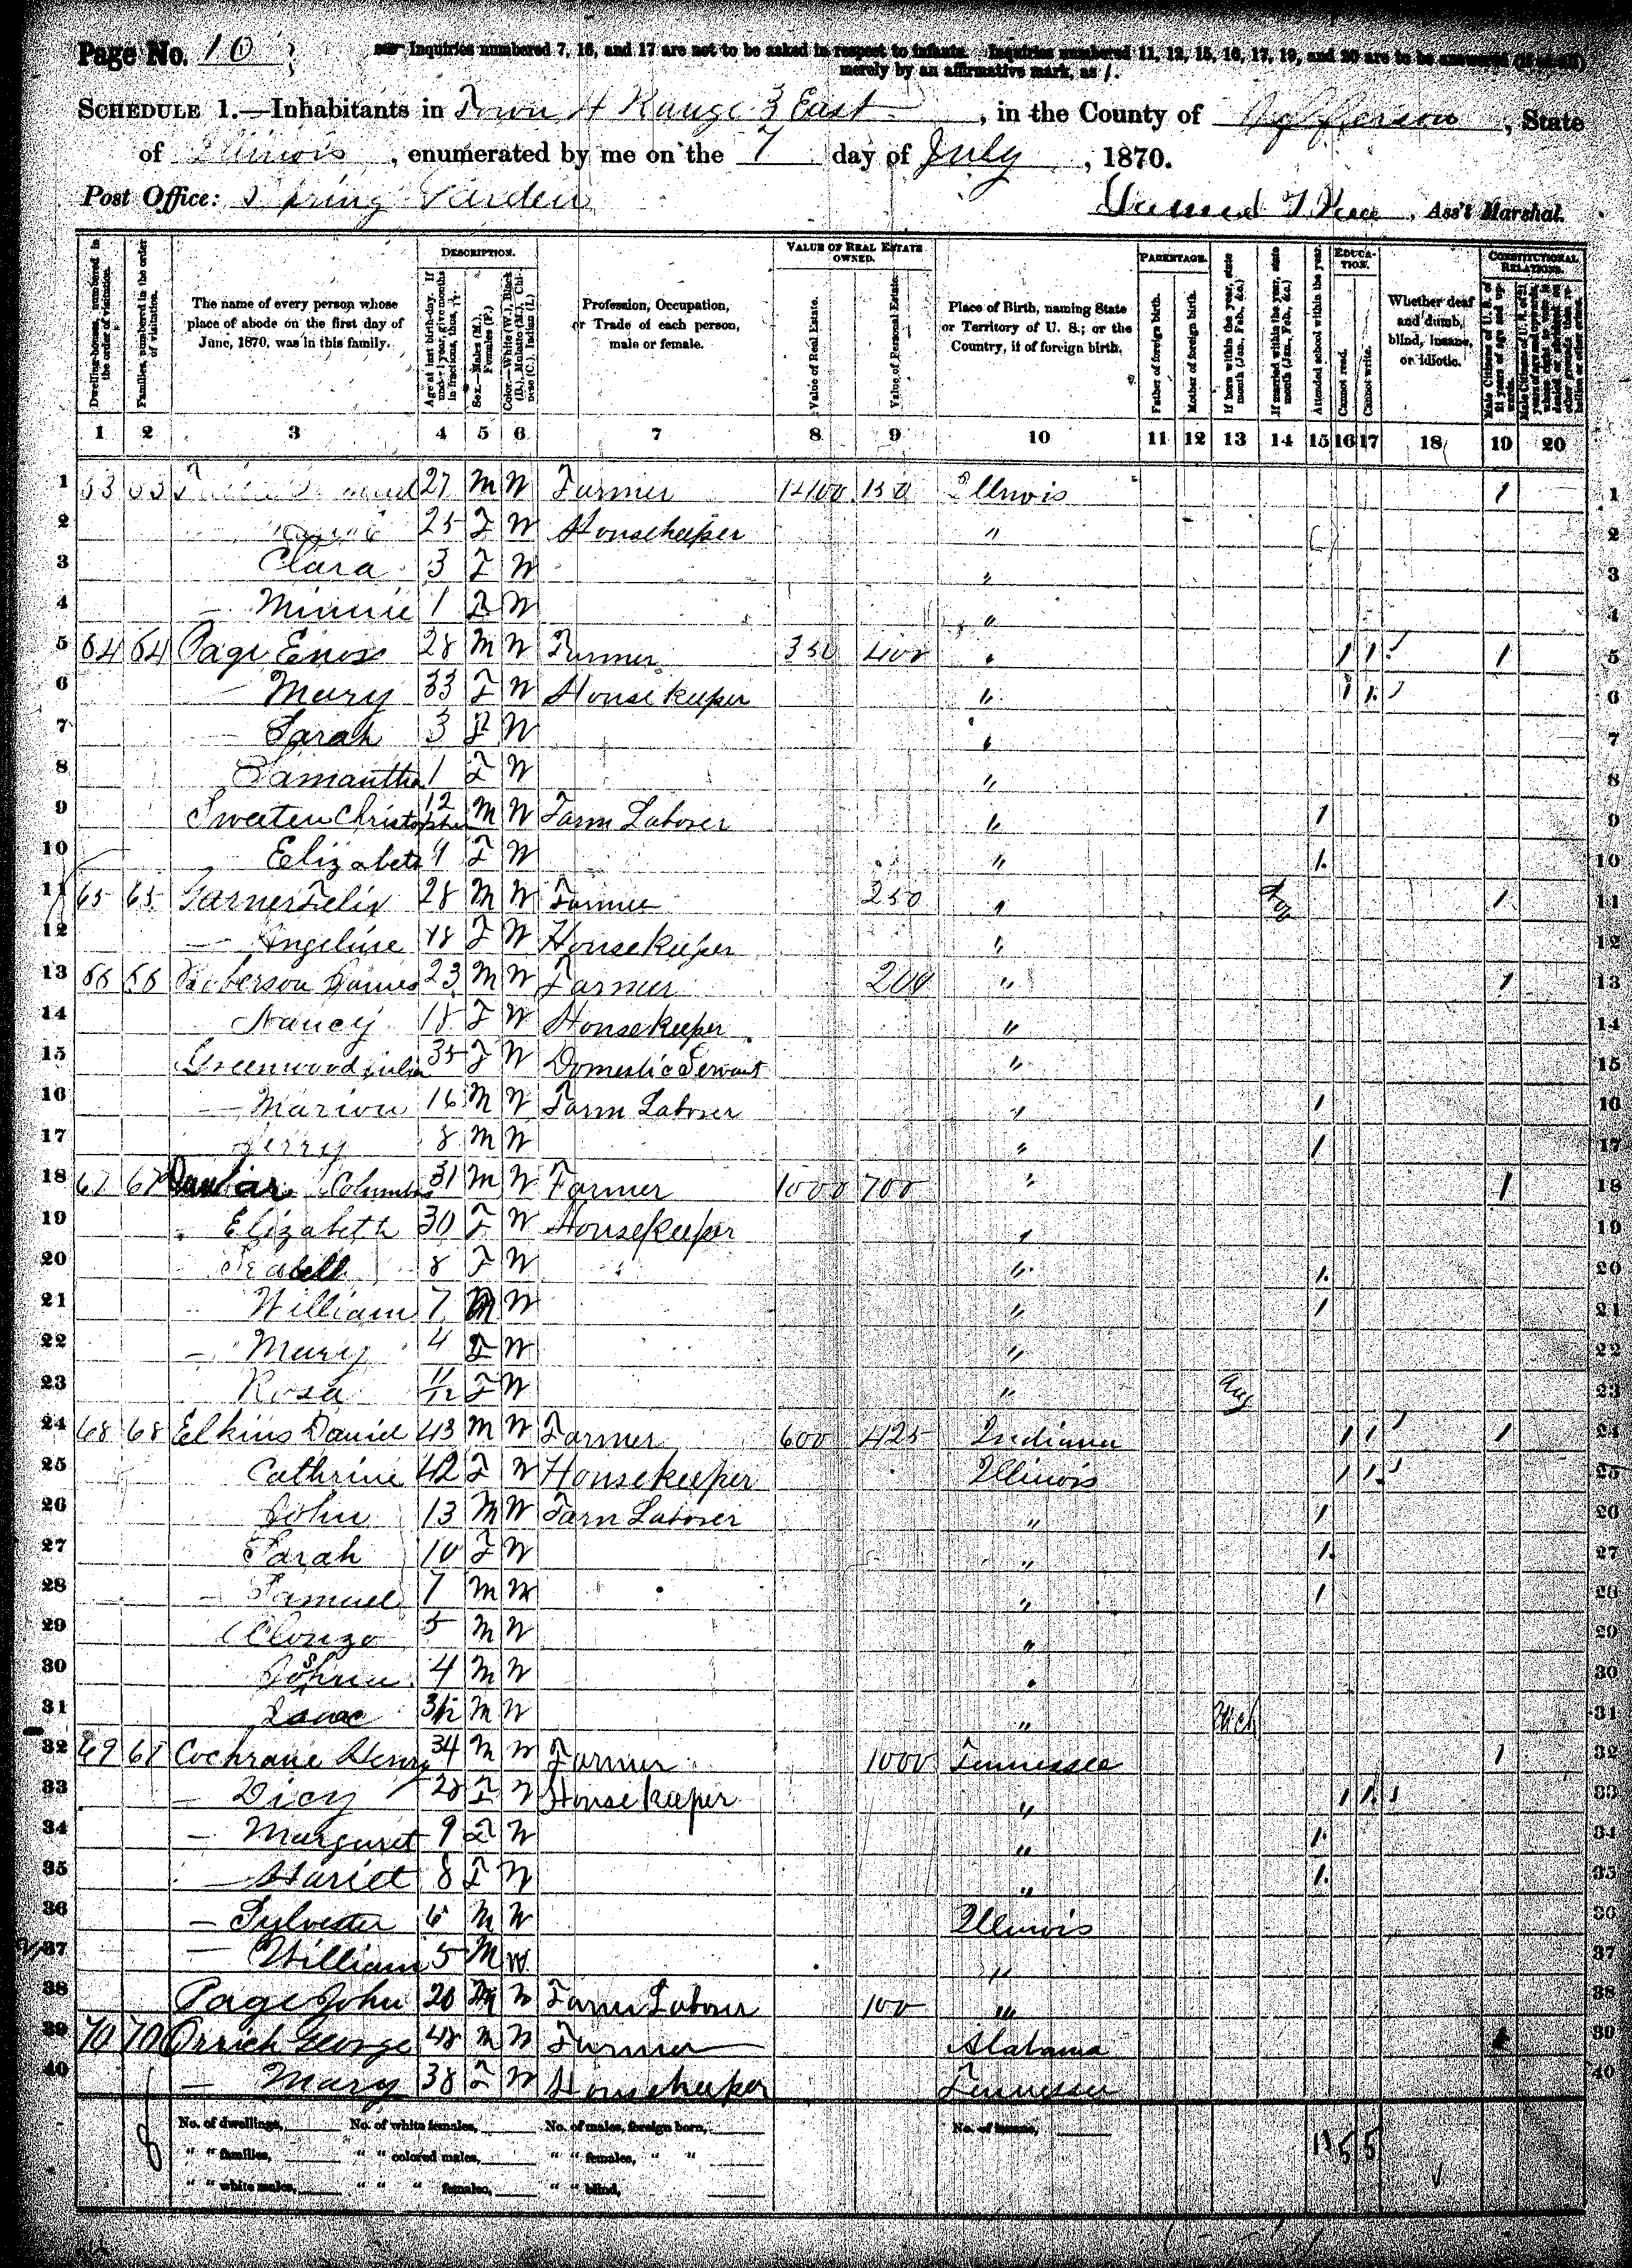 Page No. 10
Inquiries numbered 7, 16, and 17 are not to be asked in respect to infants. Inquiries numbered 11, 12, 15, 16, 17, 19, and 20 are to be answered (if at all)
merely by an affirmative mark, as /.
SCHEDULE 1.—Inhabitants in Town 4 Range 3 East, in the County of Jefferson, State
of Illinois, enumerated by me on the 7 day of July, 1870.
Post Office: Spring Garden
, Ass't Marshal.
DESCRIPTION. VALUE OF REAL ESTATE OWNED. PARENTAGE. EDUCATION. CONSTITUTIONAL RELATIONS.
Dwelling-houses, numbered in the order of visitation. Families, numbered in the order of visitation. The name of every person whose place of abode on the first day of June, 1870, was in this family. Age at last birth-day. If under 1 year, give months in fractions, thus, Sex.—Males (M.), Females (F.) Color.—White (W.), Black (B.), Mulatto (M.), Chinese (C.), Indian (I.) Profession, Occupation, or Trade of each person, male or female. Value of Real Estate. Value of Personal Estate. Place of Birth, naming State or Territory of U. S.; or the Country, if of foreign birth. Father of foreign birth. Mother of foreign birth. If born within the year, state month (Jan., Feb., &c.) If married within the year, state month (Jan., Feb., &c.) Attended school within the year. Cannot read. Cannot write. Whether deaf and dumb, blind, insane, or idiotic. Male Citizens of U. S. of 21 years of age and upwards.
1 2 3 4 5 6 7 8 9 10 11 12 13 14 15 16 17 18 19 20
1 63 63 27 M W Farmer 150 Illinois 1 1
2 25 F W Housekeeper " 2
3 Clara 3 F W " 3
4 — Minnie 1 F W " 4
5 64 64 Page Enos 28 M W Farmer 350 400 " 1 1 1 5
6 — Mary 33 F W Housekeeper " 1 1 6
7 — Sarah 3 F W " 7
8 Samantha 1 F W " 8
9 Sweeten Christopher 12 M W Farm Laborer " 1 9
10 Elizabeth 9 F W " 1 10
11 65 65 Garner Felix 28 M W Farmer 250 " Nov 1 11
12 — Angeline 18 F W Housekeeper " 12
13 66 66 Roberson James 23 M W Farmer 200 " 1 13
14 Nancy 18 F W Housekeeper " 14
15 Greenwood Julia 35 F W Domestic Servant " 15
16 — Marion 16 M W Farm Laborer " 1 16
17 Jerry 8 M W " 1 17
18 67 67 Dunbar Columbus 31 M W Farmer 1000 700 " 1 18
19 Elizabeth 30 F W Housekeeper " 19
20 8 F W " 1 20
21 William 7 M W " 1 21
22 — Mary 4 F W " 22
23 Rosa 11/12 F W " Aug 23
24 68 68 Elkins Daniel 43 M W Farmer 600 425 Indiana 1 1 1 24
25 Cathrine 42 F W Housekeeper Illinois 1 1 25
26 John 13 M W Farm Laborer " 1 26
27 Sarah 10 F W " 1 27
28 — Samuel 7 M W " 1 28
29 Alonzo 5 M W " 29
30 4 M W " 30
31 Isaac 3/12 M W " Mch 31
32 69 69 Cochrane Henry 34 M W Farmer 1000 Tennessee 1 32
33 — Dicy 28 F W Housekeeper " 1 1 33
34 — Margaret 9 F W " 1 34
35 — Hariet 8 F W " 1 35
36 — Sylvester 6 M W Illinois 36
37 — William 5 M W " 37
38 Page John 20 M W Farm Laborer 100 " 38
39 70 70 Orrick George 48 M W Farmer Alabama 1 39
40 — Mary 38 F W Housekeeper Tennessee 40
8
No. of dwellings, No. of white females, No. of males, foreign born, No. of insane,
" " families, " " colored males, " " females, " "
" " white males, " " " females, " " blind,
13 5 5